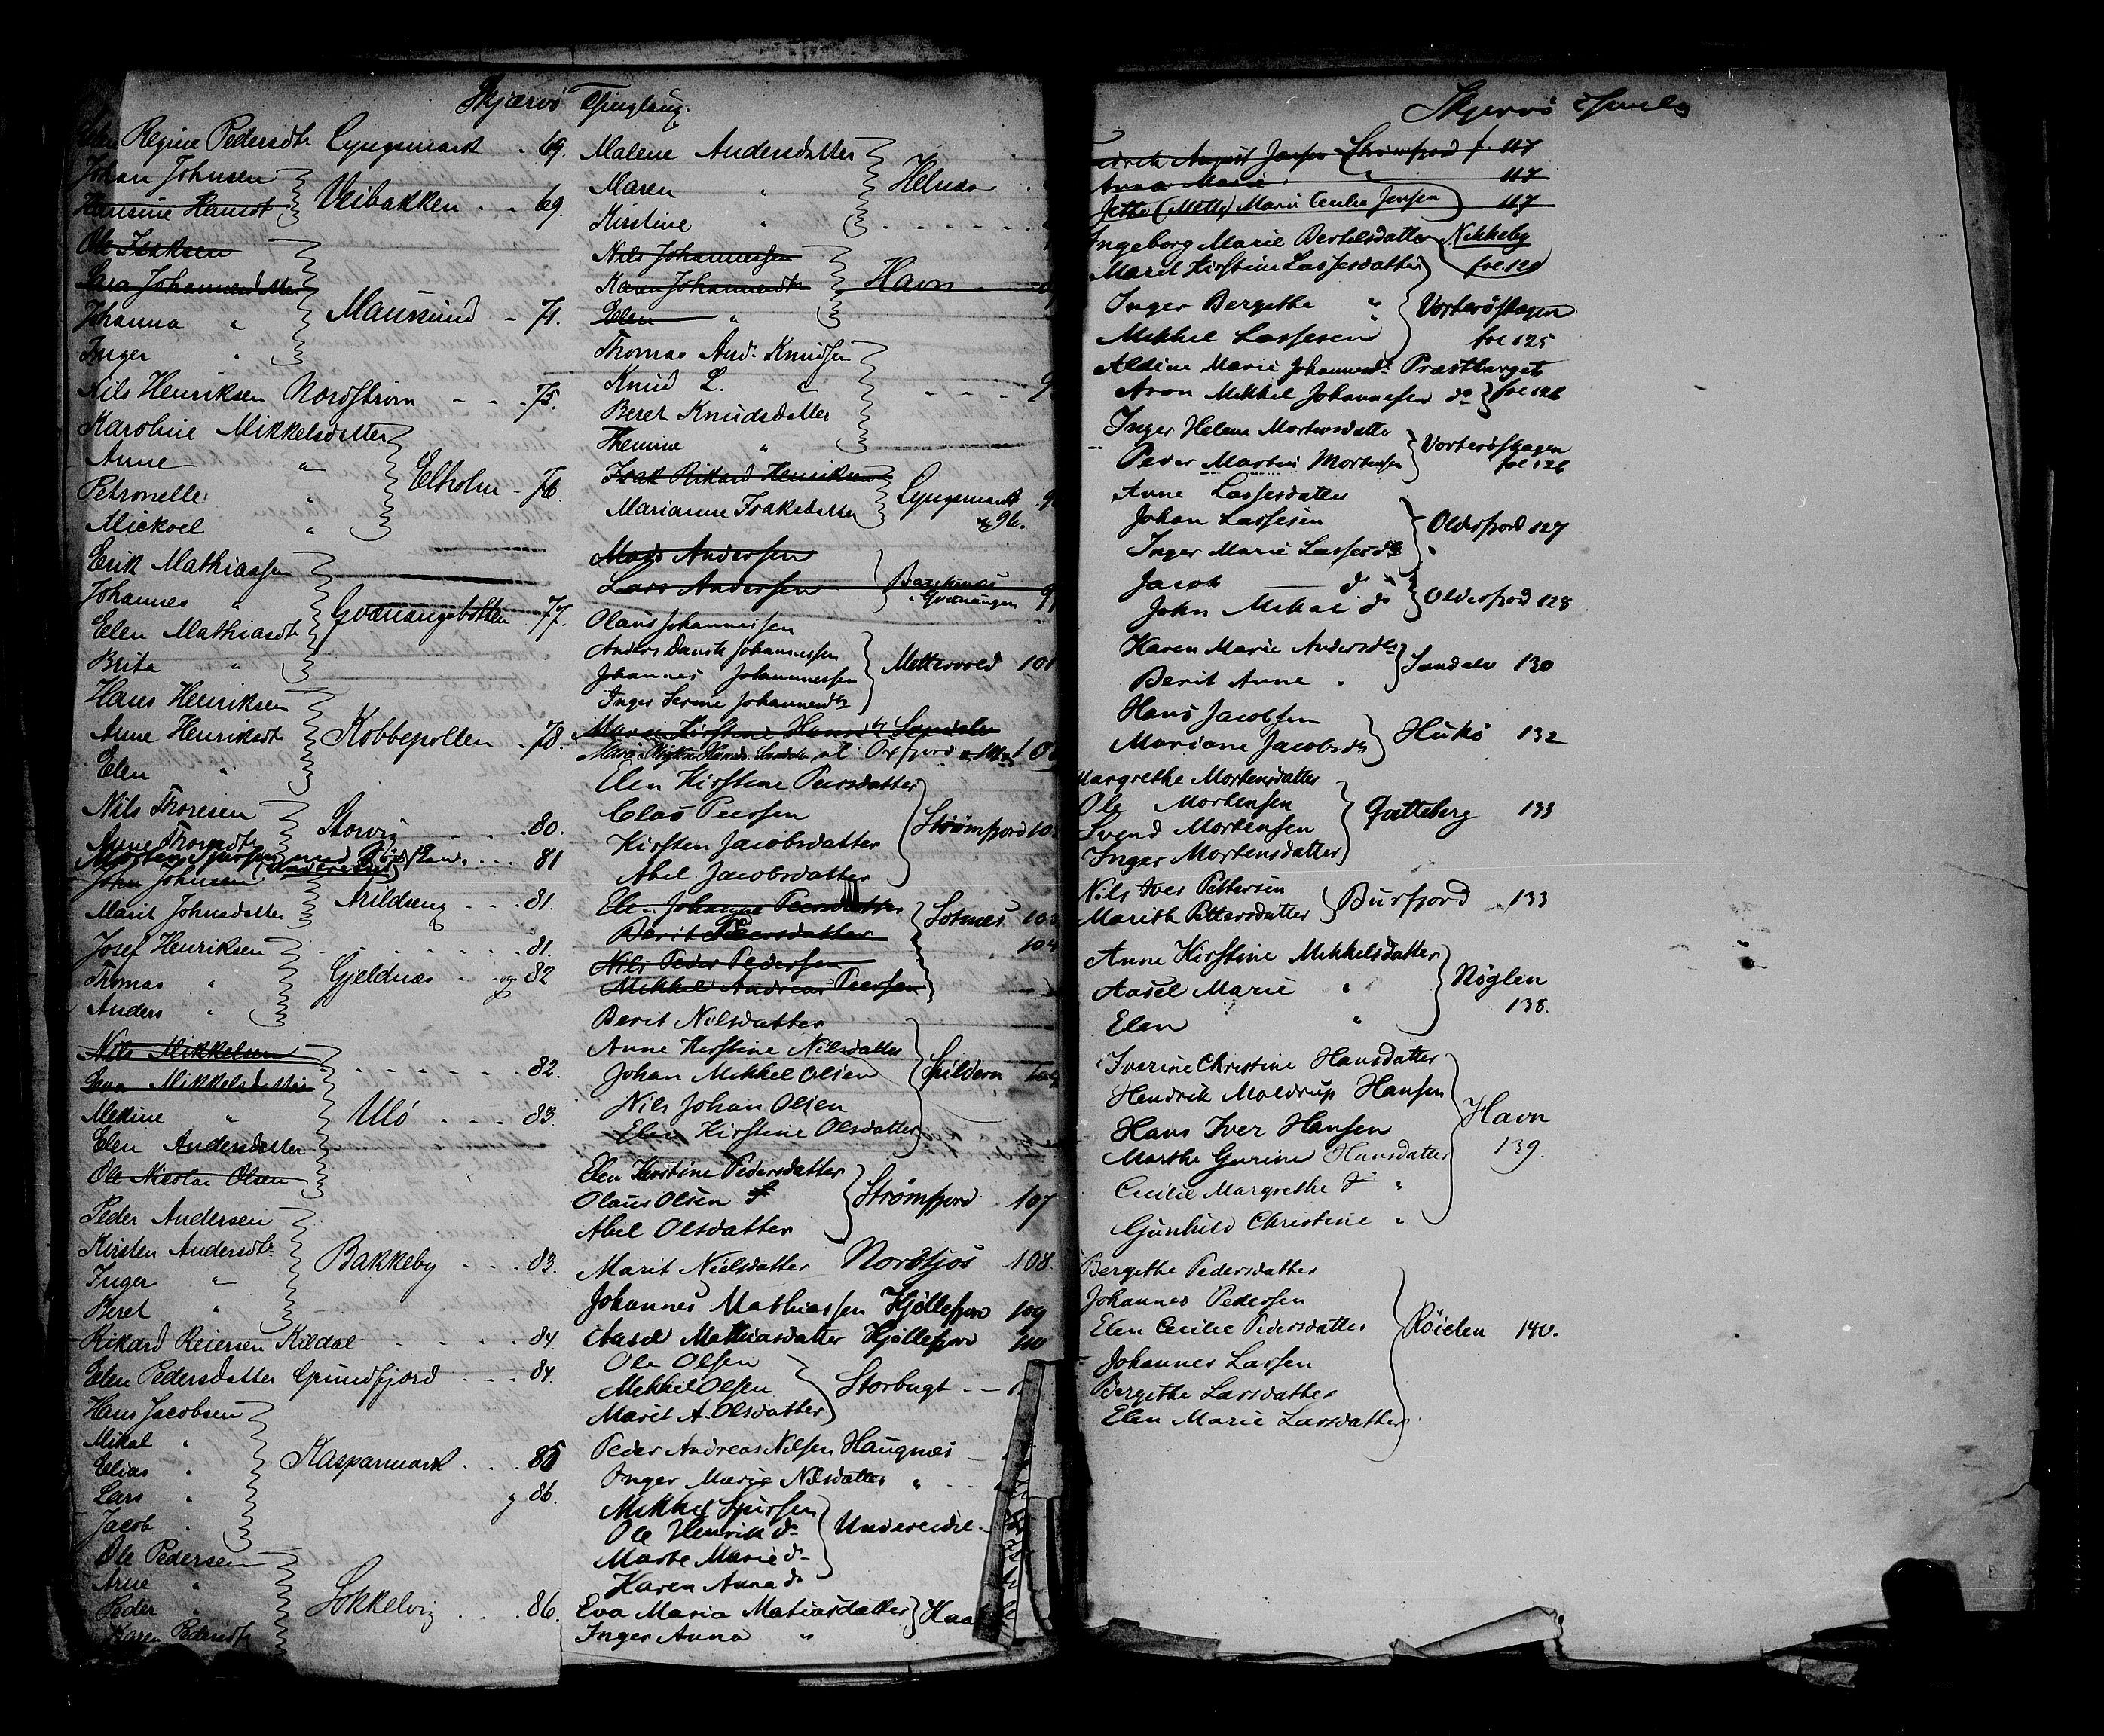 Skjærvö Thinglaug.
Regine Pedersdt. Lyngsmark 69.
Johan Johnsen
Hansine Hansdt. Veibakken 69.
Ole Isaksen
Sara Johannesdatter
Johanna " Maursund 71.
Inger "
Nils Henriksen Nordstrøm 75.
Karoline Mikkelsdatter
Anne "
Petronelle " Elholm 76.
Mickael "
Erik Mathiassen
Johannes "
Elen Mathiasdt. Gvænangsbotten 77.
Brita "
Hans Henriksen
Anne Henriksdt. Kobbepollen 78.
Elen "
Nils Thoresen
Anne Thoresdt. Storvig 80.
Morten 81
John Johnsen
Marit Johnsdatter Nildseng 81.
Josef Henriksen 81.
Thomas " Gjeldnæs og 82
Anders "
Nils Mikkelsen 82.
Eva Mikkelsdatter
Mekine " Ulö 83.
Elen Andersdatter
Ole Nicolai Olsen
Peder Andersen
Kirsten Andersdt. Bakkeby 83.
Inger "
Beret "
Rikard Reiersen Kildal 84.
Elen Pedersdatter Grundfjord 84.
Hans Jacobsen
Mikal "
Elias " Kasparmark 85
Lars " g 86.
Jacob "
Ole Pedersen
Arne "
Peder " Sokkelvig 86.
Karen Pedersdt.
Malene Andersdatter
Maren " Helnes
Kirstine "
Nils Johannessen
Karen Johannesdtr Havn
Elen "
Thomas And. Knudsen
Knud L. "
Beret Knudsdatter
Themine "
Isak Rikard Henriksen
Marianne Isaksdatter Lyngsmark
og 96.
Mads Andersen
Lars Andersen Gvænangen
Olaus Johannessen
Anders Dansk Johannessen
Johannes Johannessen Mettevold 101
Inger Serine Johannesdtr
Marie Kirstine Hansdtr Sandelv
Elen Kirstine Peersdatter
Claus Peersen
Kirsten Jacobsdatter Strømfjord
Abel Jacobsdatter
Elen Johanne Peersdatter Sotnæs 103
Berit Peersdatter 104
Nils Peder Pedersen
Mikkel Andreas Peersen
Berit Nilsdatter
Anne Kirstine Nilsdatter
Johan Mikkel Olsen Spildern
Nils Johan Olsen
Elen Kirstine Olsdatter
Elen Kirstine Pedersdatter
Olaus Olsen Strømfjord 107
Abel Olsdatter
Marit Nielsdatter Nordkjos 108
Johannes Mathiassen Kjöllefjord 109
Aasel Mathiasdatter Kjöllefjord 110
Ole Olsen
Mikkel Olsen Storbugt
Marit A. Olsdatter
Peder Andreas Nilsen Haugnæs
Inger Marie Nilsdatter "
Mikkel Sjursen
Ole Henrik do Undereidet
Marte Marie do
Karen Anna do
Eva Maria Matiasdatter
Inger Anna "
Skjervö
August Jensen Strømfjord f. 117
Anna Marie 117
Jette (Mette) Marie Cecilie Jensen 117
Ingeborg Marie Bertelsdatter Nikkeby
Maret Kirstine Lassesdatter fol. 120
Inger Bergithe " Vorterøskagen
Mikkel Lassesen fol 125
Aldine Marie Johannesdt. Præstberget
Aron Mikkel Johannesen do fol 126
Inger Helene Mortensdatter
Peder Martin Mortensen Vorterøskagen
fol 126
Anne Lassesdatter
Johan Lassesen Olderfjord 127
Inger Marie Lassesdtr
Jacob do
John Mikal do Olderfjord 128
Karen Marie Andersdtr Sandelv 130
Berit Anne "
Hans Jacobsen
Mariane Jacobsdtr Hukö 132
Margrethe Mortensdatter
Ole Mortensen
Svend Mortensen Qvitteberg 133
Inger Mortensdatter
Nils Iver Pettersen
Marith Pettersdatter Burfjord 133
Anne Kirstine Mikkelsdatter
Aasel Marie " Nøglen
Elen " 138.
Iverine Christine Hansdatter
Hendrik Moldrup Hansen
Hans Iver Hansen Havn
Marthe Gurine Hansdatter 139.
Cecilie Margrethe "
Gunhild Christine "
Bergithe Pedersdatter
Johannes Pedersen
Elen Cecilie Pedersdatter Röielen 140.
Johannes Larsen
Bergithe Larsdatter
Elen Marie Larsdatter